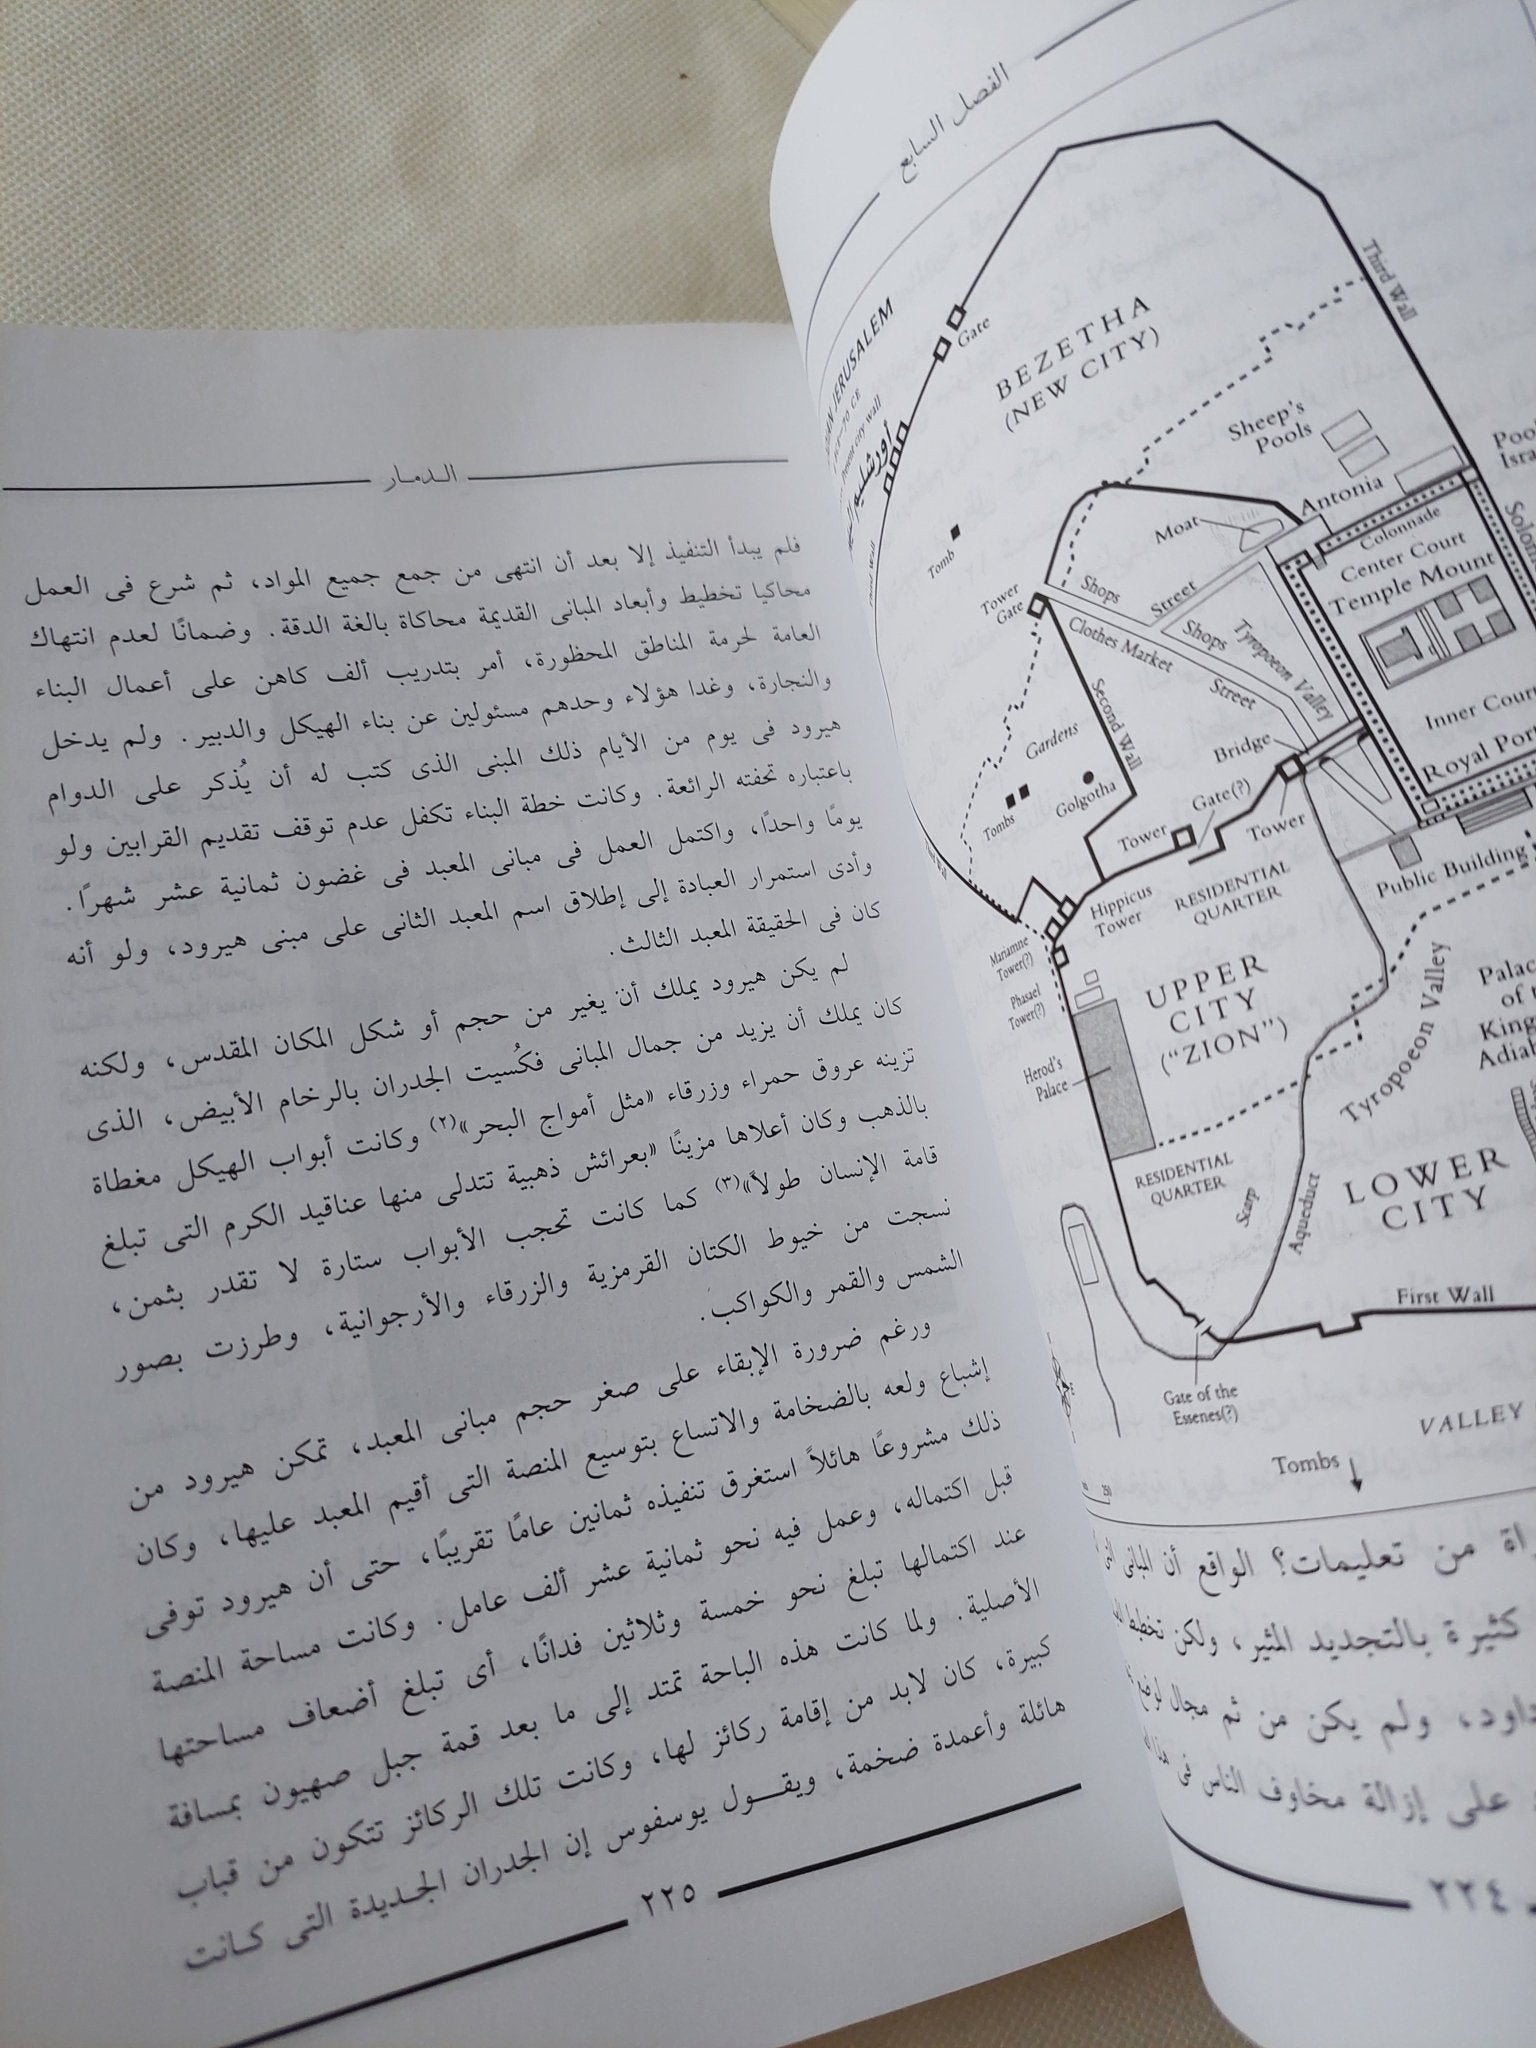 الفصل السابع
JERUSALEM
أورشليم
Third Wall
Gate
BEZETHA
(NEW CITY)
Sheep's
Pools
Antonia
Moat
Colonnade
Center Court
Temple Mount
Tomb
Tower
Gate
Shops
Street
Shops
Tyropoeon Valley
Clothes Market
Street
Second Wall
Gardens
Bridge
Inner
Royal
Golgotha
Tombs
Gate(?)
Tower
Tower
Public Building
Hippicus
Tower
RESIDENTIAL
QUARTER
Mariamne
Tower(?)
Phasael
Tower(?)
UPPER
CITY
("ZION")
Tyropoeon Valley
Herod's
Palace
RESIDENTIAL
QUARTER
Scarp
Aqueduct
LOWER
CITY
First Wall
Gate of the
Essenes(?)
VALLEY
Tombs
من تعليمات؟ الواقع أن المبانى
كثيرة بالتجديد المثير، ولكن تخطيط
ولم يكن من ثم مجال لوضع
على إزالة مخاوف الناس فى
٢٢٤
الدمار
فلم يبدأ التنفيذ إلا بعد أن انتهى من جمع جميع المواد، ثم شرع فى العمل
محاكيا تخطيط وأبعاد المبانى القديمة محاكاة بالغة الدقة. وضمانًا لعدم انتهاك
العامة لحرمة المناطق المحظورة، أمر بتدريب ألف كاهن على أعمال البناء
والنجارة، وغدا هؤلاء وحدهم مسئولين عن بناء الهيكل والدبير. ولم يدخل
هيرود فى يوم من الأيام ذلك المبنى الذى كتب له أن يُذكر على الدوام
باعتباره تحفته الرائعة. وكانت خطة البناء تكفل عدم توقف تقديم القرابين ولو
يومًا واحدًا، واكتمل العمل فى مبانى المعبد فى غضون ثمانية عشر شهرًا.
وأدى استمرار العبادة إلى إطلاق اسم المعبد الثانى على مبنى هيرود، ولو أنه
كان فى الحقيقة المعبد الثالث.
لم يكن هيرود يملك أن يغير من حجم أو شكل المكان المقدس، ولكنه
كان يملك أن يزيد من جمال المبانى فكُسيت الجدران بالرخام الأبيض، الذى
تزينه عروق حمراء وزرقاء «مثل أمواج البحر»(٢) وكانت أبواب الهيكل مغطاة
بالذهب وكان أعلاها مزينًا «بعرائش ذهبية تتدلى منها عناقيد الكرم التى تبلغ
قامة الإنسان طولاً»(٣) كما كانت تحجب الأبواب ستارة لا تقدر بثمن،
نسجت من خيوط الكتان القرمزية والزرقاء والأرجوانية، وطرزت بصور
الشمس والقمر والكواكب.
ورغم ضرورة الإبقاء على صغر حجم مبانى المعبد، تمكن هيرود من
إشباع ولعه بالضخامة والاتساع بتوسيع المنصة التى أقيم المعبد عليها، وكان
ذلك مشروعًا هائلاً استغرق تنفيذه ثمانين عامًا تقريبًا، حتى أن هيرود توفى
قبل اكتماله، وعمل فيه نحو ثمانية عشر ألف عامل. وكانت مساحة المنصة
عند اكتمالها تبلغ نحو خمسة وثلاثين فدانًا، أى تبلغ أضعاف مساحتها
الأصلية. ولما كانت هذه الباحة تمتد إلى ما بعد قمة جبل صهيون بمسافة
كبيرة، كان لابد من إقامة ركائز لها، وكانت تلك الركائز تتكون من قباب
هائلة وأعمدة ضخمة، ويقـول يوسفوس إن الجدران الجديدة التى كانت
٢٢٥